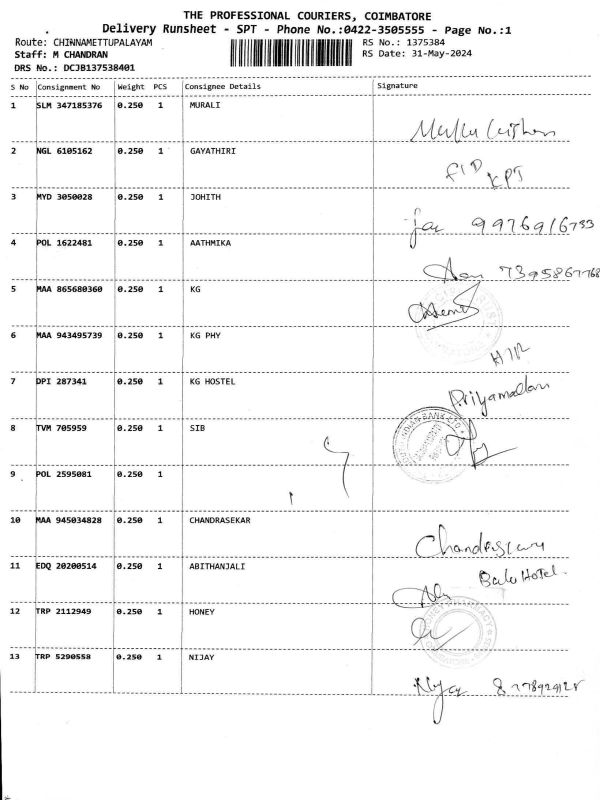 THE PROFESSIONAL COURIERS, COIMBATORE
Delivery Runsheet - SPT - Phone No.:0422-3505555 - Page No.:1
Route: CHINNAMETTUPALAYAM RS No.: 1375384
Staff: M CHANDRAN RS Date: 31-May-2024
DRS No.: DCJB137538401
S No Consignment No Weight PCS Consignee Details Signature
1 SLM 347185376 0.250 1 MURALI
2 NGL 6105162 0.250 1 GAYATHIRI
KPT
3 MYD 3050028 0.250 1 JOHITH
4 POL 1622481 0.250 1 AATHMIKA
5 MAA 865680360 0.250 1 KG
6 MAA 943495739 0.250 1 KG PHY
7 DPI 287341 0.250 1 KG HOSTEL
8 TVM 705959 0.250 1 SIB
9 POL 2595081 0.250 1
10 MAA 945034828 0.250 1 CHANDRASEKAR
11 EDQ 20200514 0.250 1 ABITHANJALI
Hotel
12 TRP 2112949 0.250 1 HONEY
13 TRP 5290558 0.250 1 NIJAY